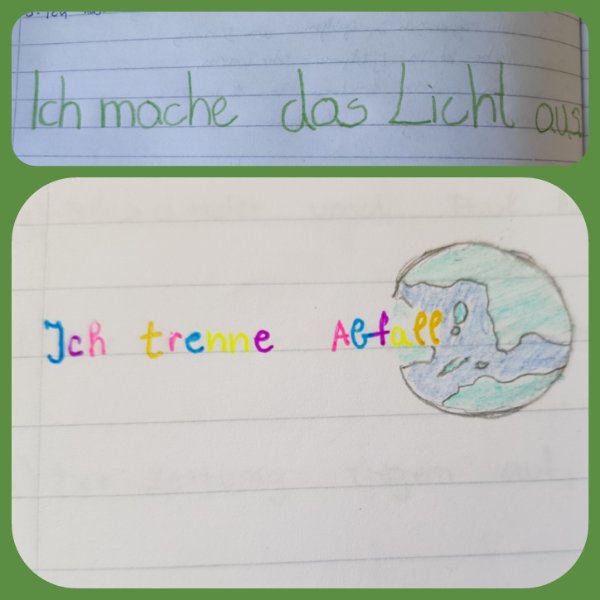 Ich mache das Licht aus
Ich trenne Abfall